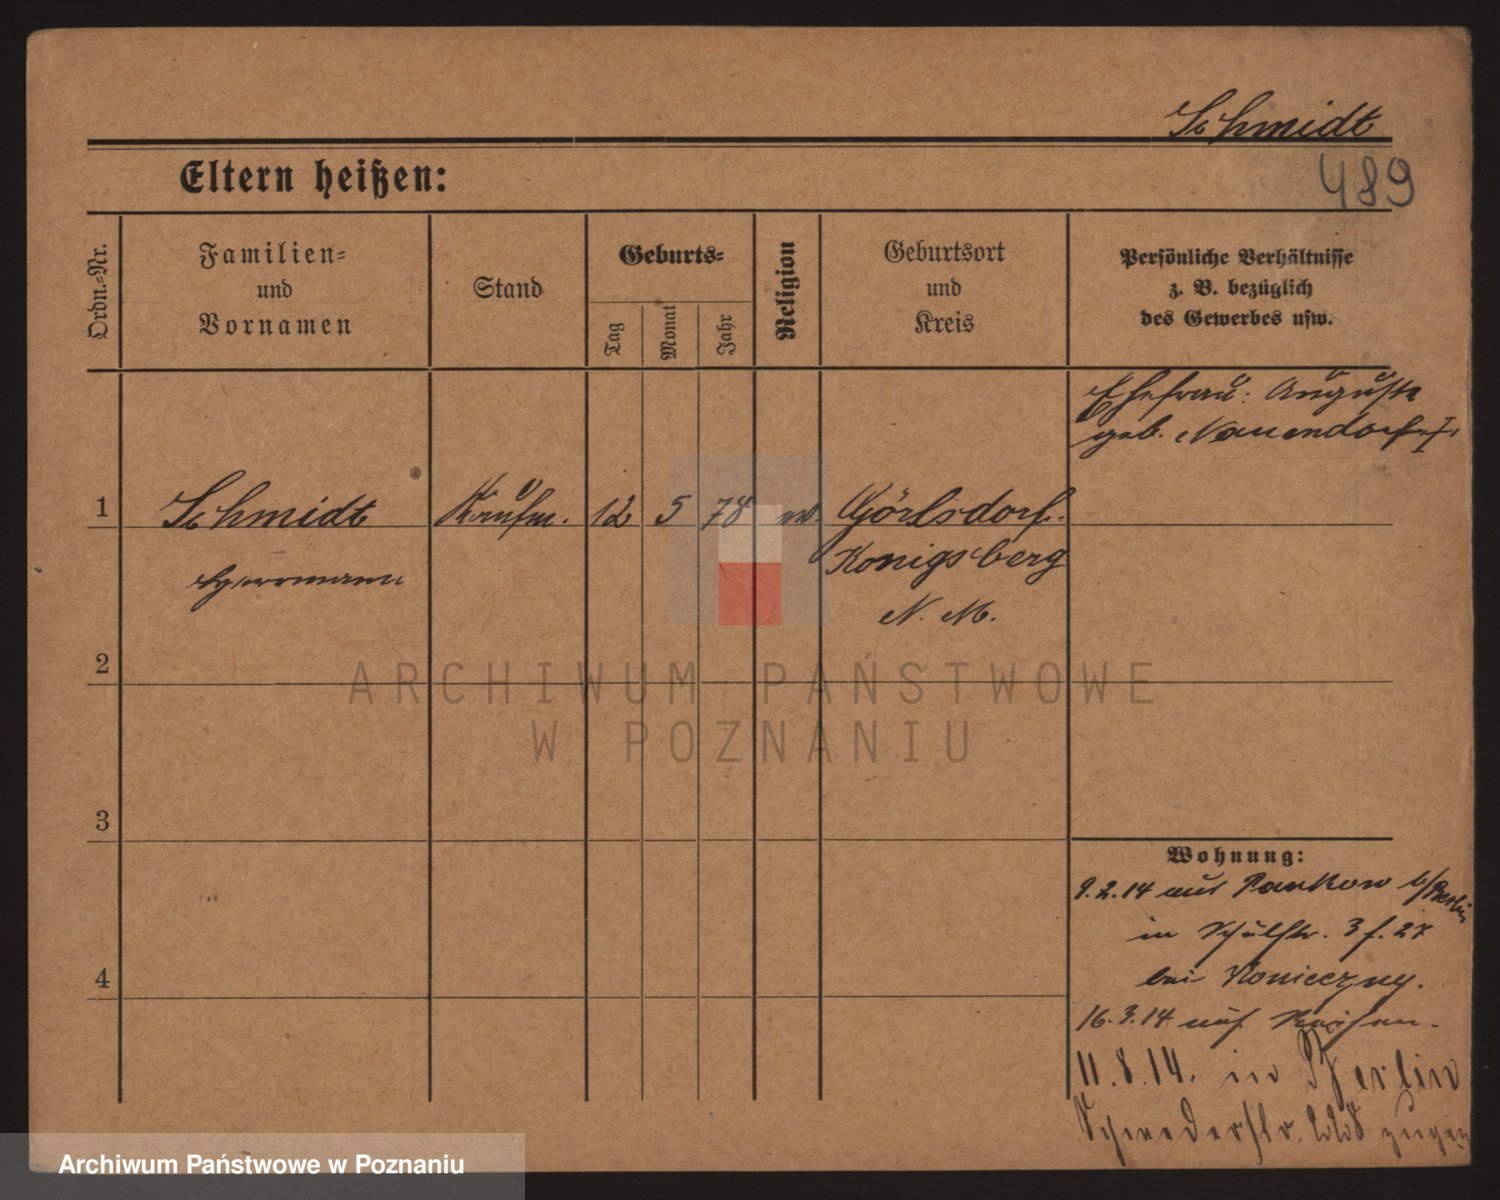 Schmidt
489
Eltern heißen:
Ordn.-Nr.
Familien-
und
Vornamen
Stand
Geburts-
Tag
Monat
Jahr
Religion
Geburtsort
und
Kreis
Persönliche Verhältnisse
z. B. bezüglich
des Gewerbes usw.
Ehefrau: Auguste
geb. Nauendorf
1 Schmidt Kaufm. 12 5 78 ev. Görlsdorf.
Herrmann Königsberg
N. M.
2
ARCHIWUM PAŃSTWOWE
W POZNANIU
3
Wohnung:
9.2.14 aus Pankow b/Berlin
in Schulstr. 3 f. 27
bei Konieczny.
16.3.14 auf Reisen.
11.8.14. in Berlin
Schwederstr. zugen
4
Archiwum Państwowe w Poznaniu